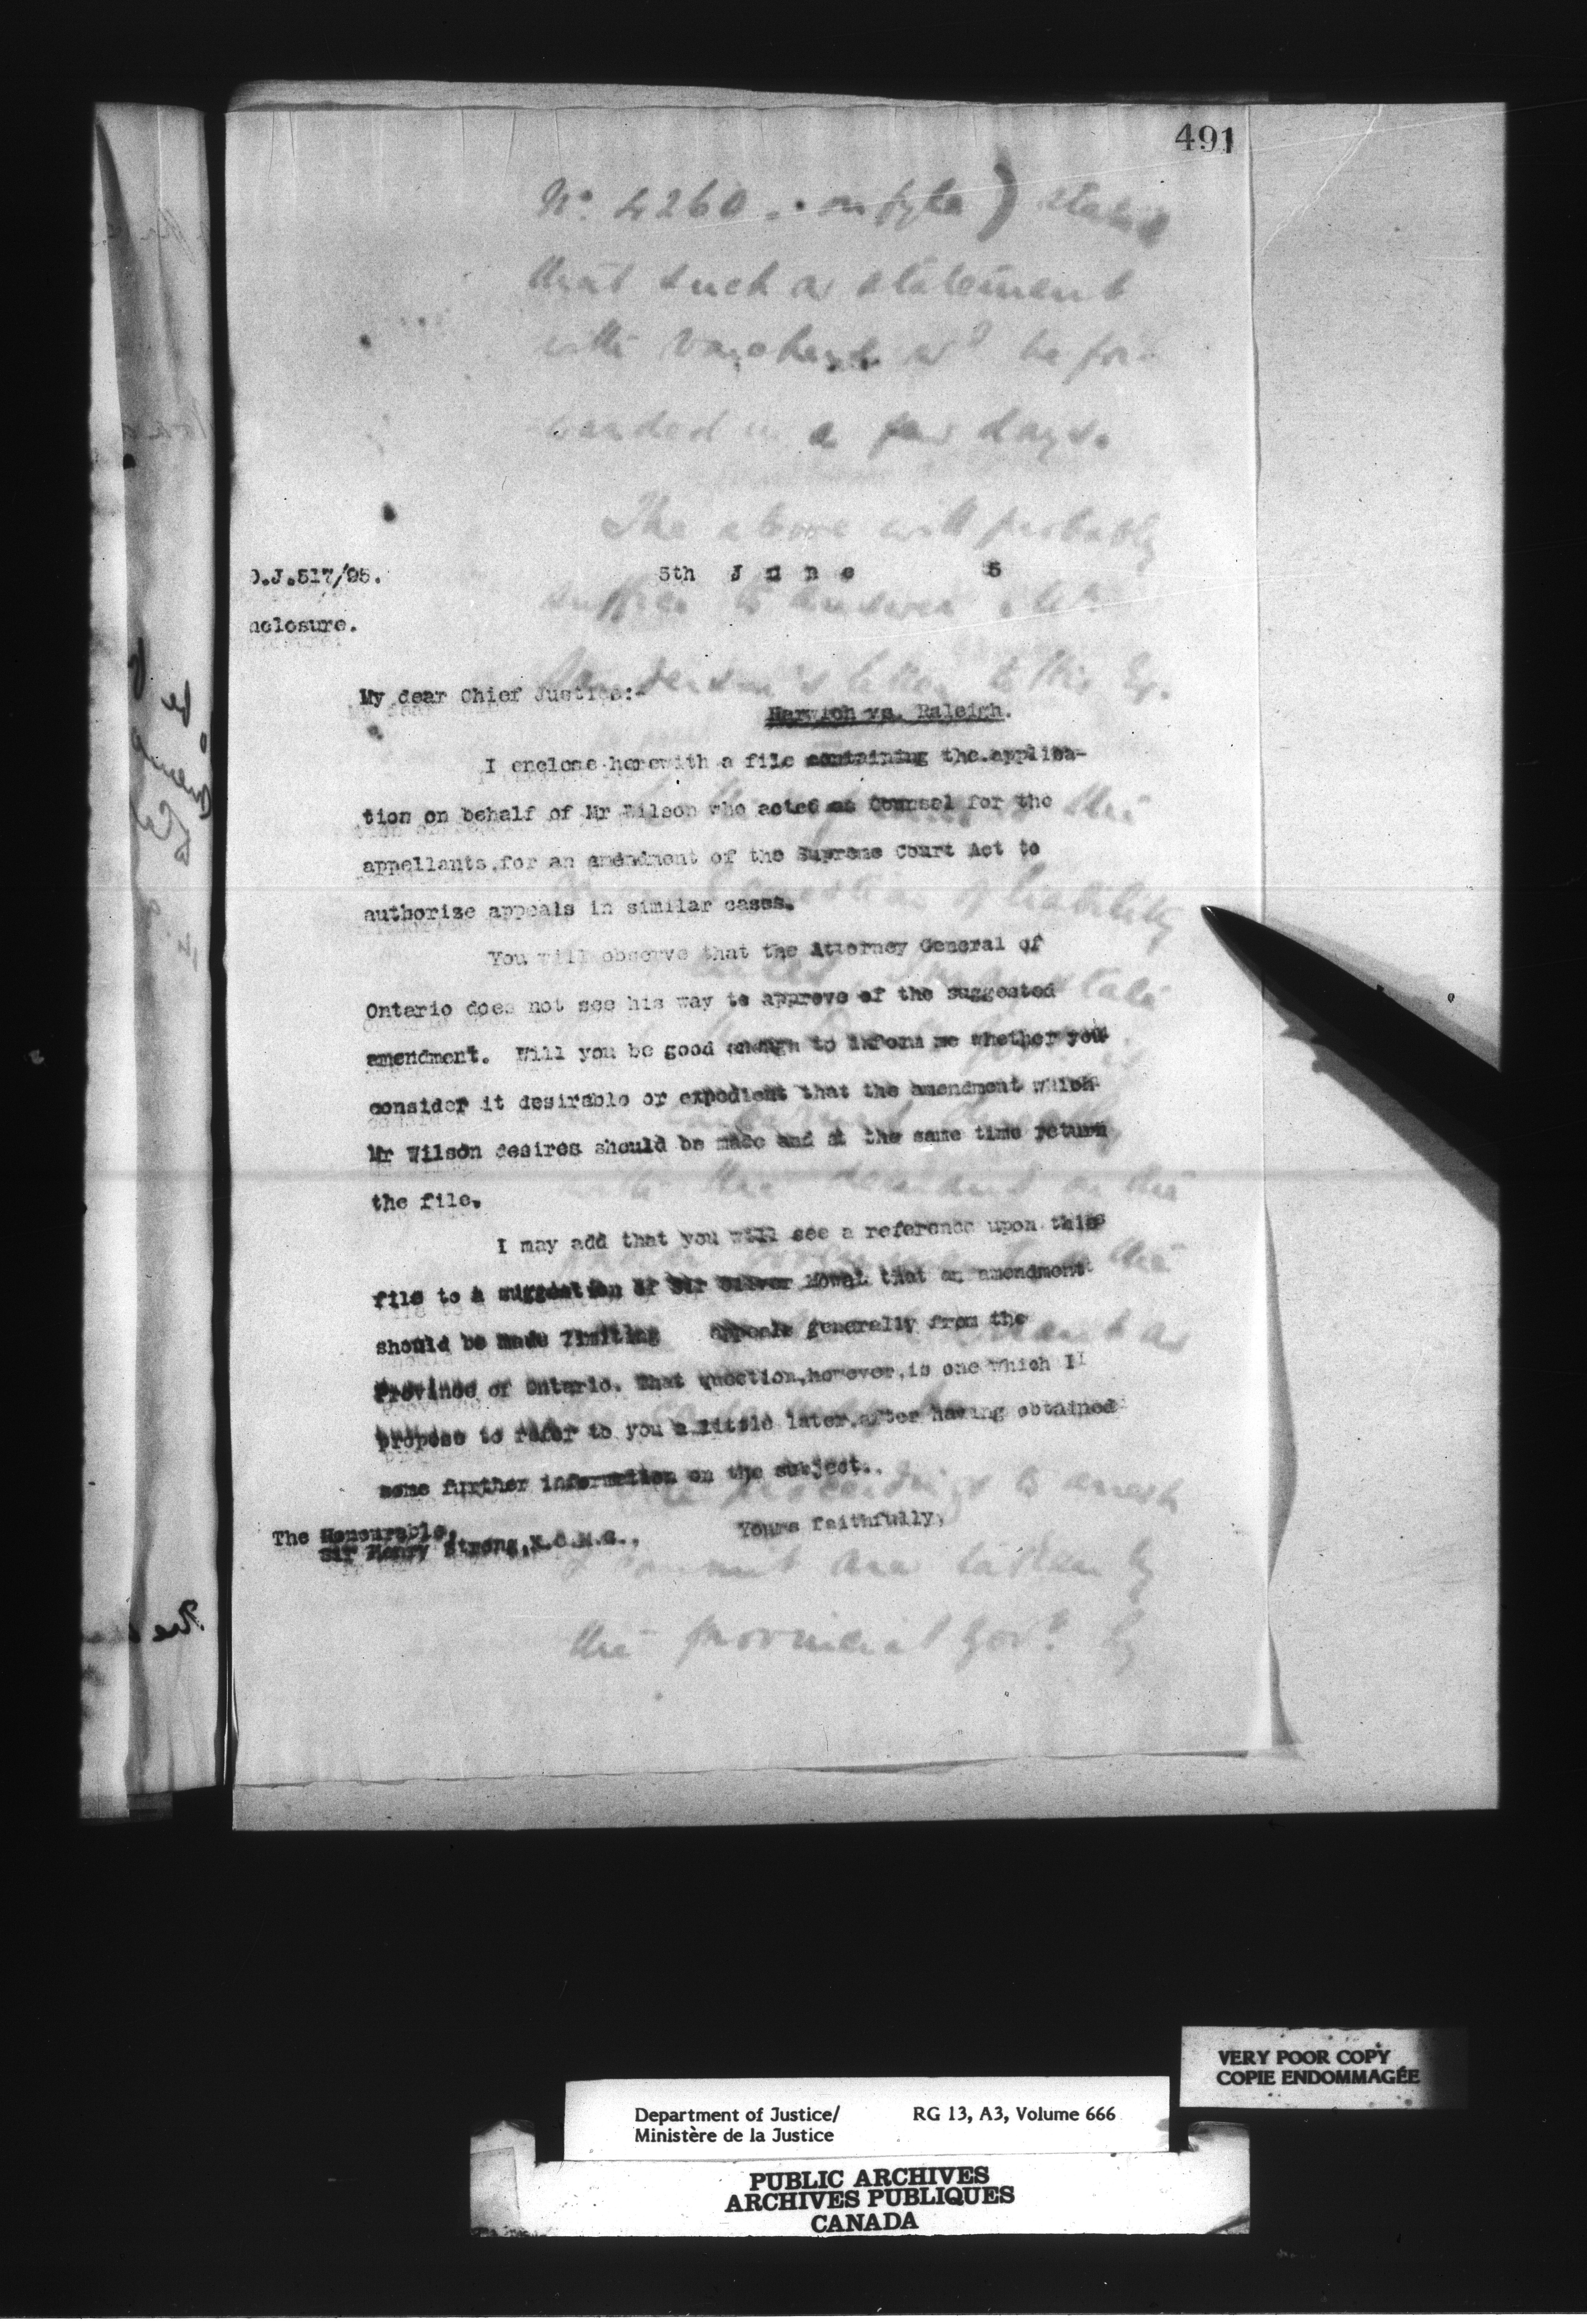 491
No. 4260 . on fyle) stated
that such a statement
with vouchers wd be for-
warded in a few days.
The above will probably
D.J.517/95.
5th June 5
suffice to answer Mr
nclosure.
letter to His Ex.
My dear Chief Justice:-
Harwich vs. Raleigh.
I enclose herewith a file containing the applica-
tion on behalf of Mr Wilson who acted as Counsel for the
appellants,for an amendment of the Supreme Court Act to
authorize appeals in similar cases.
of liability
You will observe that the Attorney General of
Ontario does not see his way to approve of the suggested
amendment. Will you be good enough to inform me whether you
consider it desirable or expedient that the amendment which
Mr Wilson desires should be made and at the same time return
the file.
I may add that you will see a reference upon this
file to a suggestion of Sir Oliver Mowat that an amendment
should be made limiting appeals generally from the
Province of Ontario. That question,however,is one which I
propose to refer to you a little later,after having obtained
some further information on the subject.
proceedings to arrest
Yours faithfully,
The Honourable,
Sir Henry Strong,K.C.M.G.,
are taken by
the provincial Govt. by
VERY POOR COPY
COPIE ENDOMMAGÉE
Department of Justice/ RG 13, A3, Volume 666
Ministère de la Justice
PUBLIC ARCHIVES
ARCHIVES PUBLIQUES
CANADA